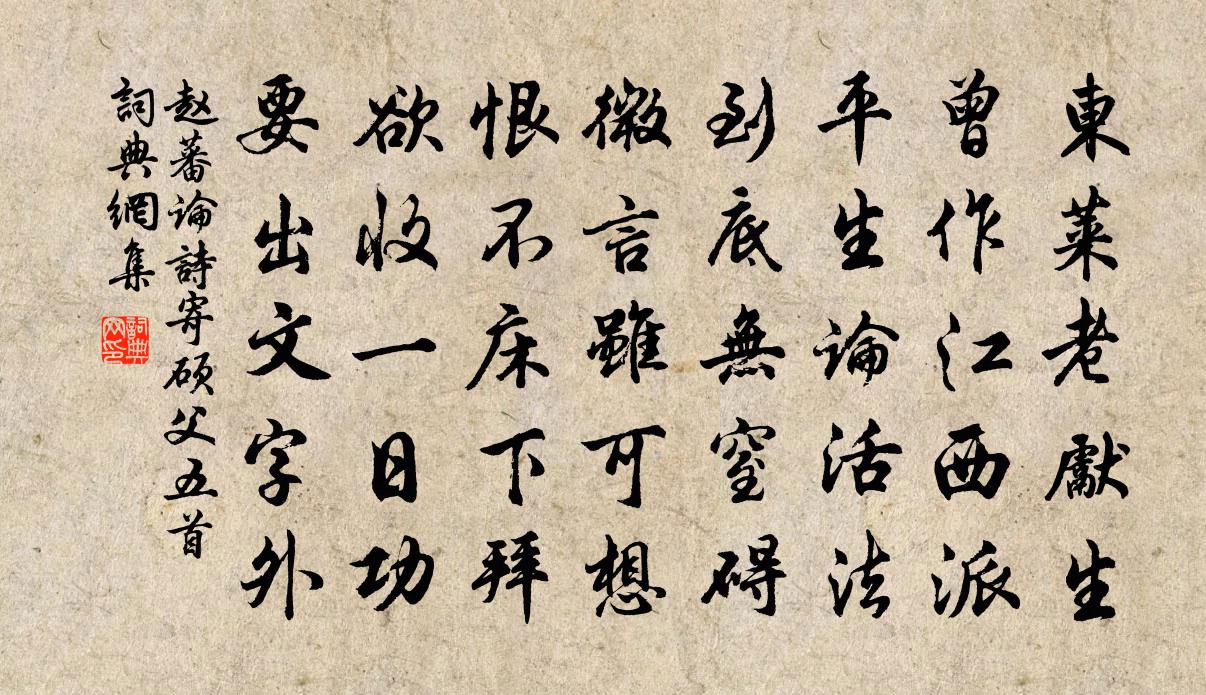 東萊老獻生
曾作江西派
平生論活法
到底無窒碍
微言雖可想
恨不床下拜
欲收一日功
要出文字外
赵蕃論詩寄碩父五首
詞典網集
詞典网印